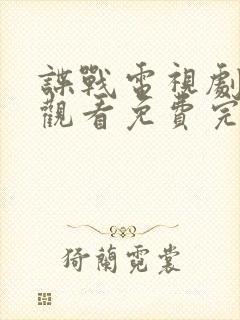 諜戰電視劇
觀看免費完
猗蘭霓裳